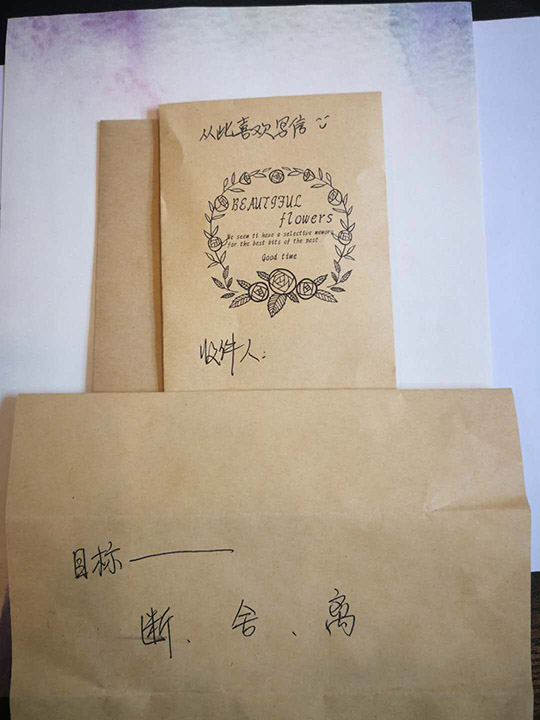 从此喜欢写信
BEAUTIFUL
flowers
We seem ti have a selective memory
for the best bits of the past
Good time
收件人:
目标——
断、舍、离